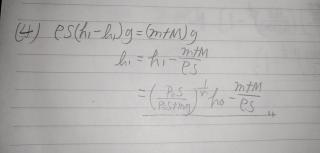 (4) ρS(h₁-h₁)g=(m+M)g
h₁ = h₁ - \frac{m+M}{ρS}
= \left(\frac{P₀S}{P₀S+mg}\right)^{\frac{1}{r}} h₀ - \frac{m+M}{ρS}